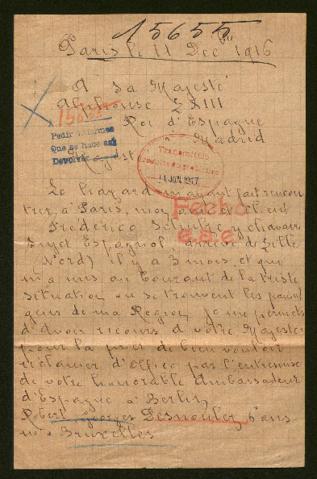 15655
Paris le 11 Dec bre 1916
A Sa Majesté
Alphonse XIII
15655
Roi d'Espagne
Madrid
Pedir informes
Que se hace así
Devolver
Majesté
Transmitido
11 JAN 1917
Le hazard m'ayant fait rencon
trer, à Paris, mon
Fecho
Frederico
Sujet Espagnol arrivé de Lille
e.s.e.
(Nord) il y a 3 mois et qui
m'a mis au courant de la triste
situation ou se trouvent les pauvres
gens de ma Region, je me permets
d'avoir recours à votre Majesté
pour la prier de bien vouloir
réclamer d'Office par l'entremise
de votre honorable Ambassadeur
d'Espagne à Berlin,
Robert Georges Desmoulez, 6 ans
à Bruxelles